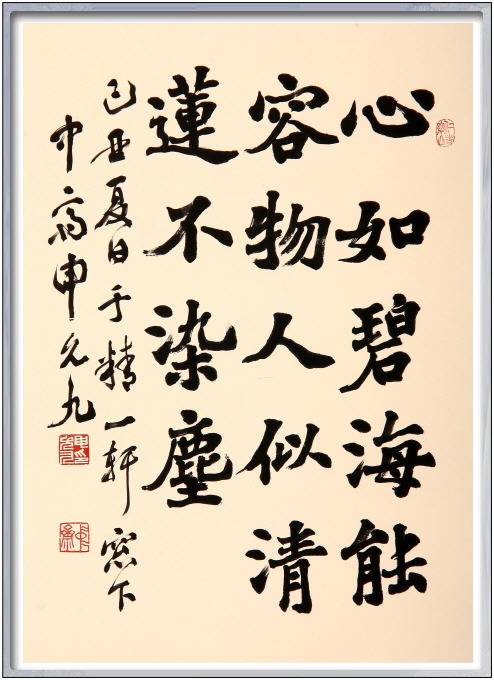 心如碧海能
容物人似清
蓮不染塵
己丑夏日于精一軒窓下
中齋申允九